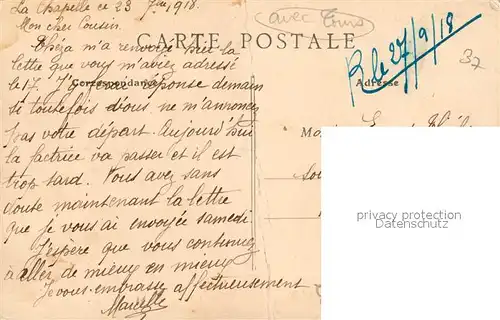 La Chapelle ce 23 7bre 1918.
avec Trius
Mon cher Cousin.
CARTE POSTALE
R le 27/9/18
37
Théza m'a renvoyé hier la
lettre que vous m'aviez adressé
le 17. J'y ferai réponse demain
Correspondance
Adresse
si toutefois d'ous ne m'annoncez
pas votre départ. Aujourd'hui
la factrice va passer et il est
trop tard. Vous avez sans
doute maintenant la lettre
que je vous ai envoyée samedi
J'espère que vous continuez
à aller de mieux en mieux
Je vous embrasse affectueusement
Marcelle
M
privacy protection
Datenschutz